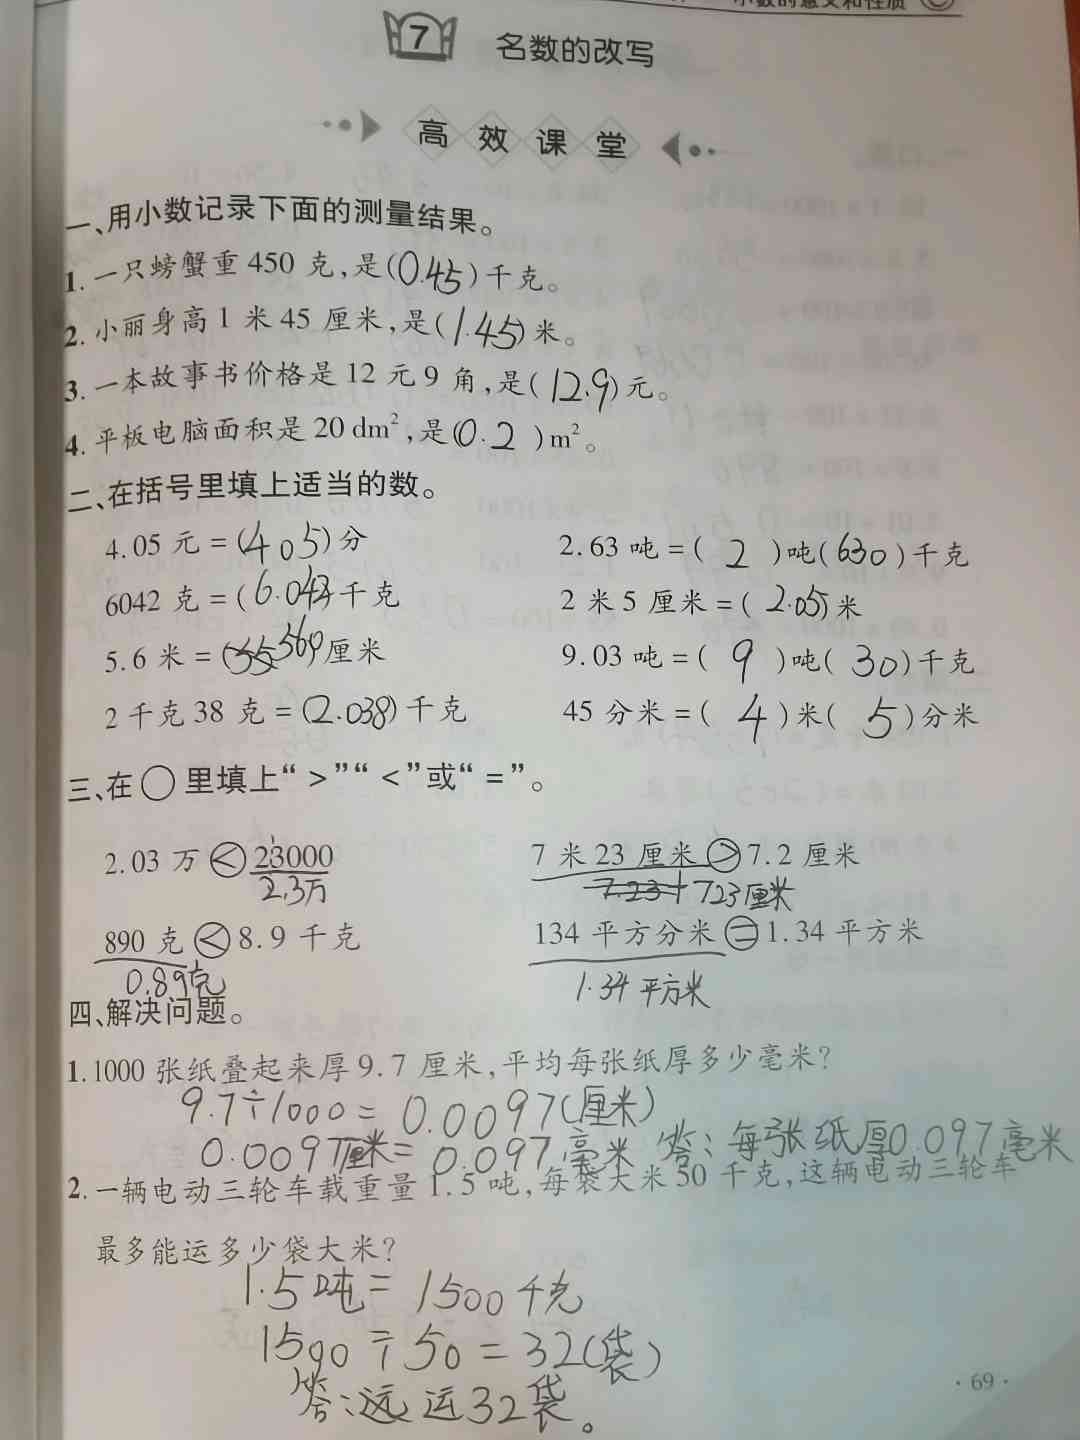 小数的意义和性质
7 名数的改写
高效课堂
一、用小数记录下面的测量结果。
1. 一只螃蟹重 450 克,是(0.45)千克。
2. 小丽身高 1 米 45 厘米,是(1.45)米。
3. 一本故事书价格是 12 元 9 角,是(12.9)元。
4. 平板电脑面积是 20 dm²,是(0.2)m²。
二、在括号里填上适当的数。
4.05 元 = (405)分 2.63 吨 = (2)吨(630)千克
6042 克 = (6.042)千克 2 米 5 厘米 = (2.05)米
5.6 米 = (560)厘米 9.03 吨 = (9)吨(30)千克
2 千克 38 克 = (2.038)千克 45 分米 = (4)米(5)分米
三、在○里填上“>”“<”或“=”。
2.03 万 < 23000 7 米 23 厘米 > 7.2 厘米
2.3万 7.23 723厘米
890 克 < 8.9 千克 134 平方分米 = 1.34 平方米
0.89克 1.34平方米
四、解决问题。
1. 1000 张纸叠起来厚 9.7 厘米,平均每张纸厚多少毫米?
9.7÷1000=0.0097(厘米)
0.0097厘米=0.097毫米 答:每张纸厚0.097毫米
2. 一辆电动三轮车载重量 1.5 吨,每袋大米 50 千克,这辆电动三轮车
最多能运多少袋大米?
1.5吨=1500千克
1500÷50=32(袋)
答:远运32袋。
·69·